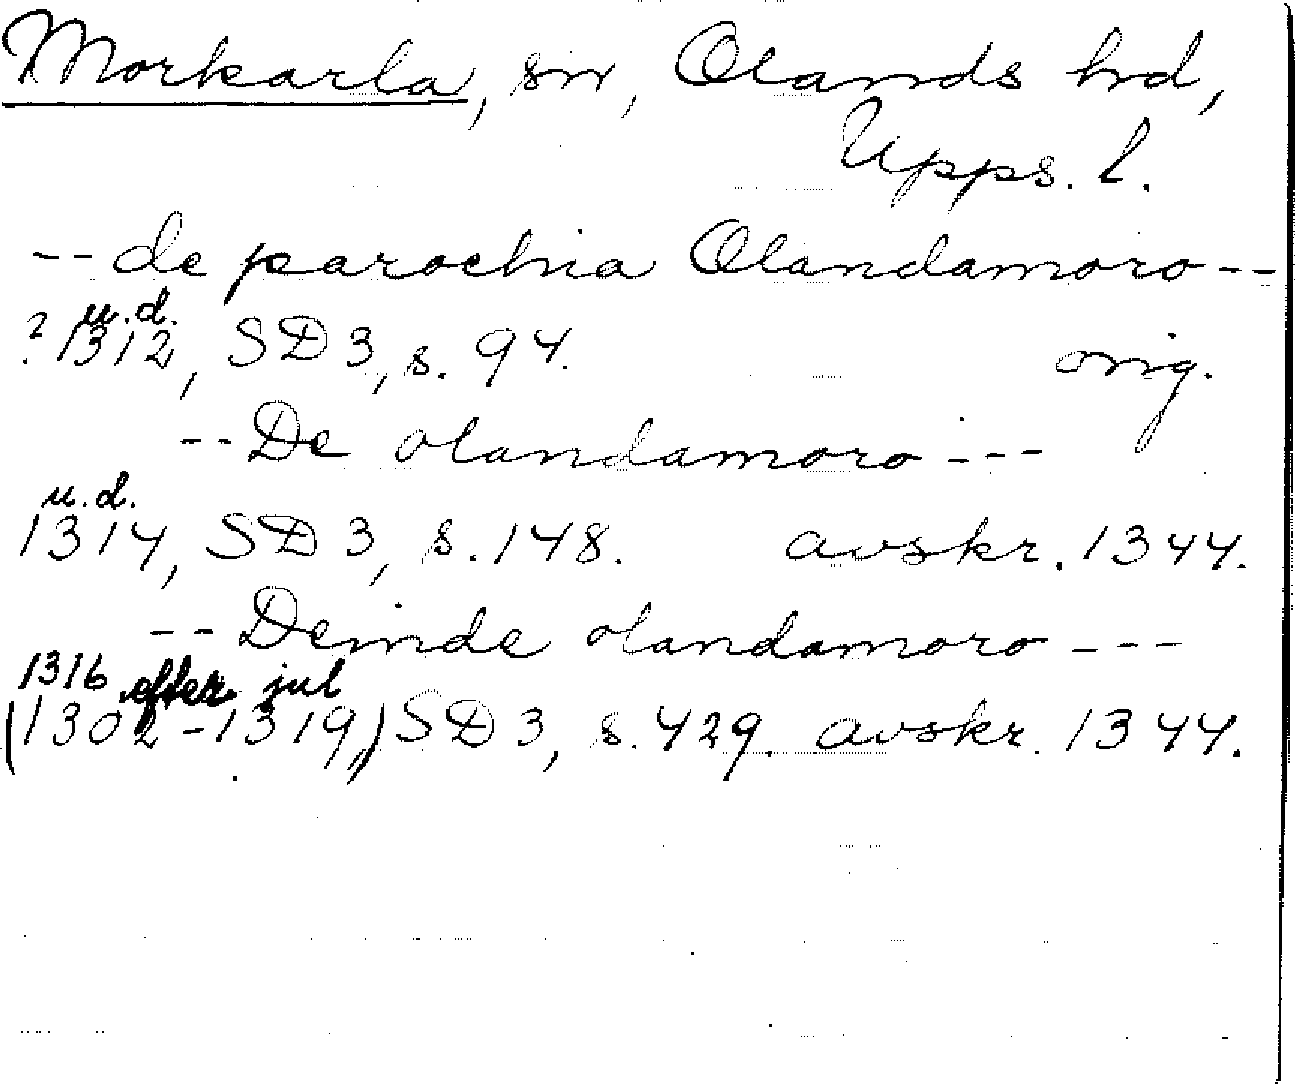 Morkarla, sn, Olands hd,
Upps. l.
-- de parochia Olandamoro --
u. d.
? 1312, SD 3, s. 94. orig.
-- De olandamoro ---
u. d.
1314, SD 3, s. 148. avskr. 1344.
-- Deinde olandamoro ---
1316 efter jul
(1302-1319,) SD 3, s. 429. avskr. 1344.